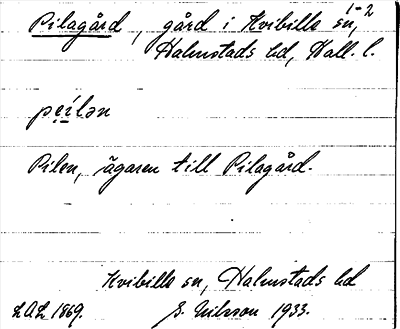 1-2
Pilagård, gård i Kvibille sn,
Halmstads hd, Hall. l.
pe̯i̯lən
Pilen, ägaren till Pilagård.
Kvibille sn, Halmstads hd
LAL 1869. S. Nilsson 1933.